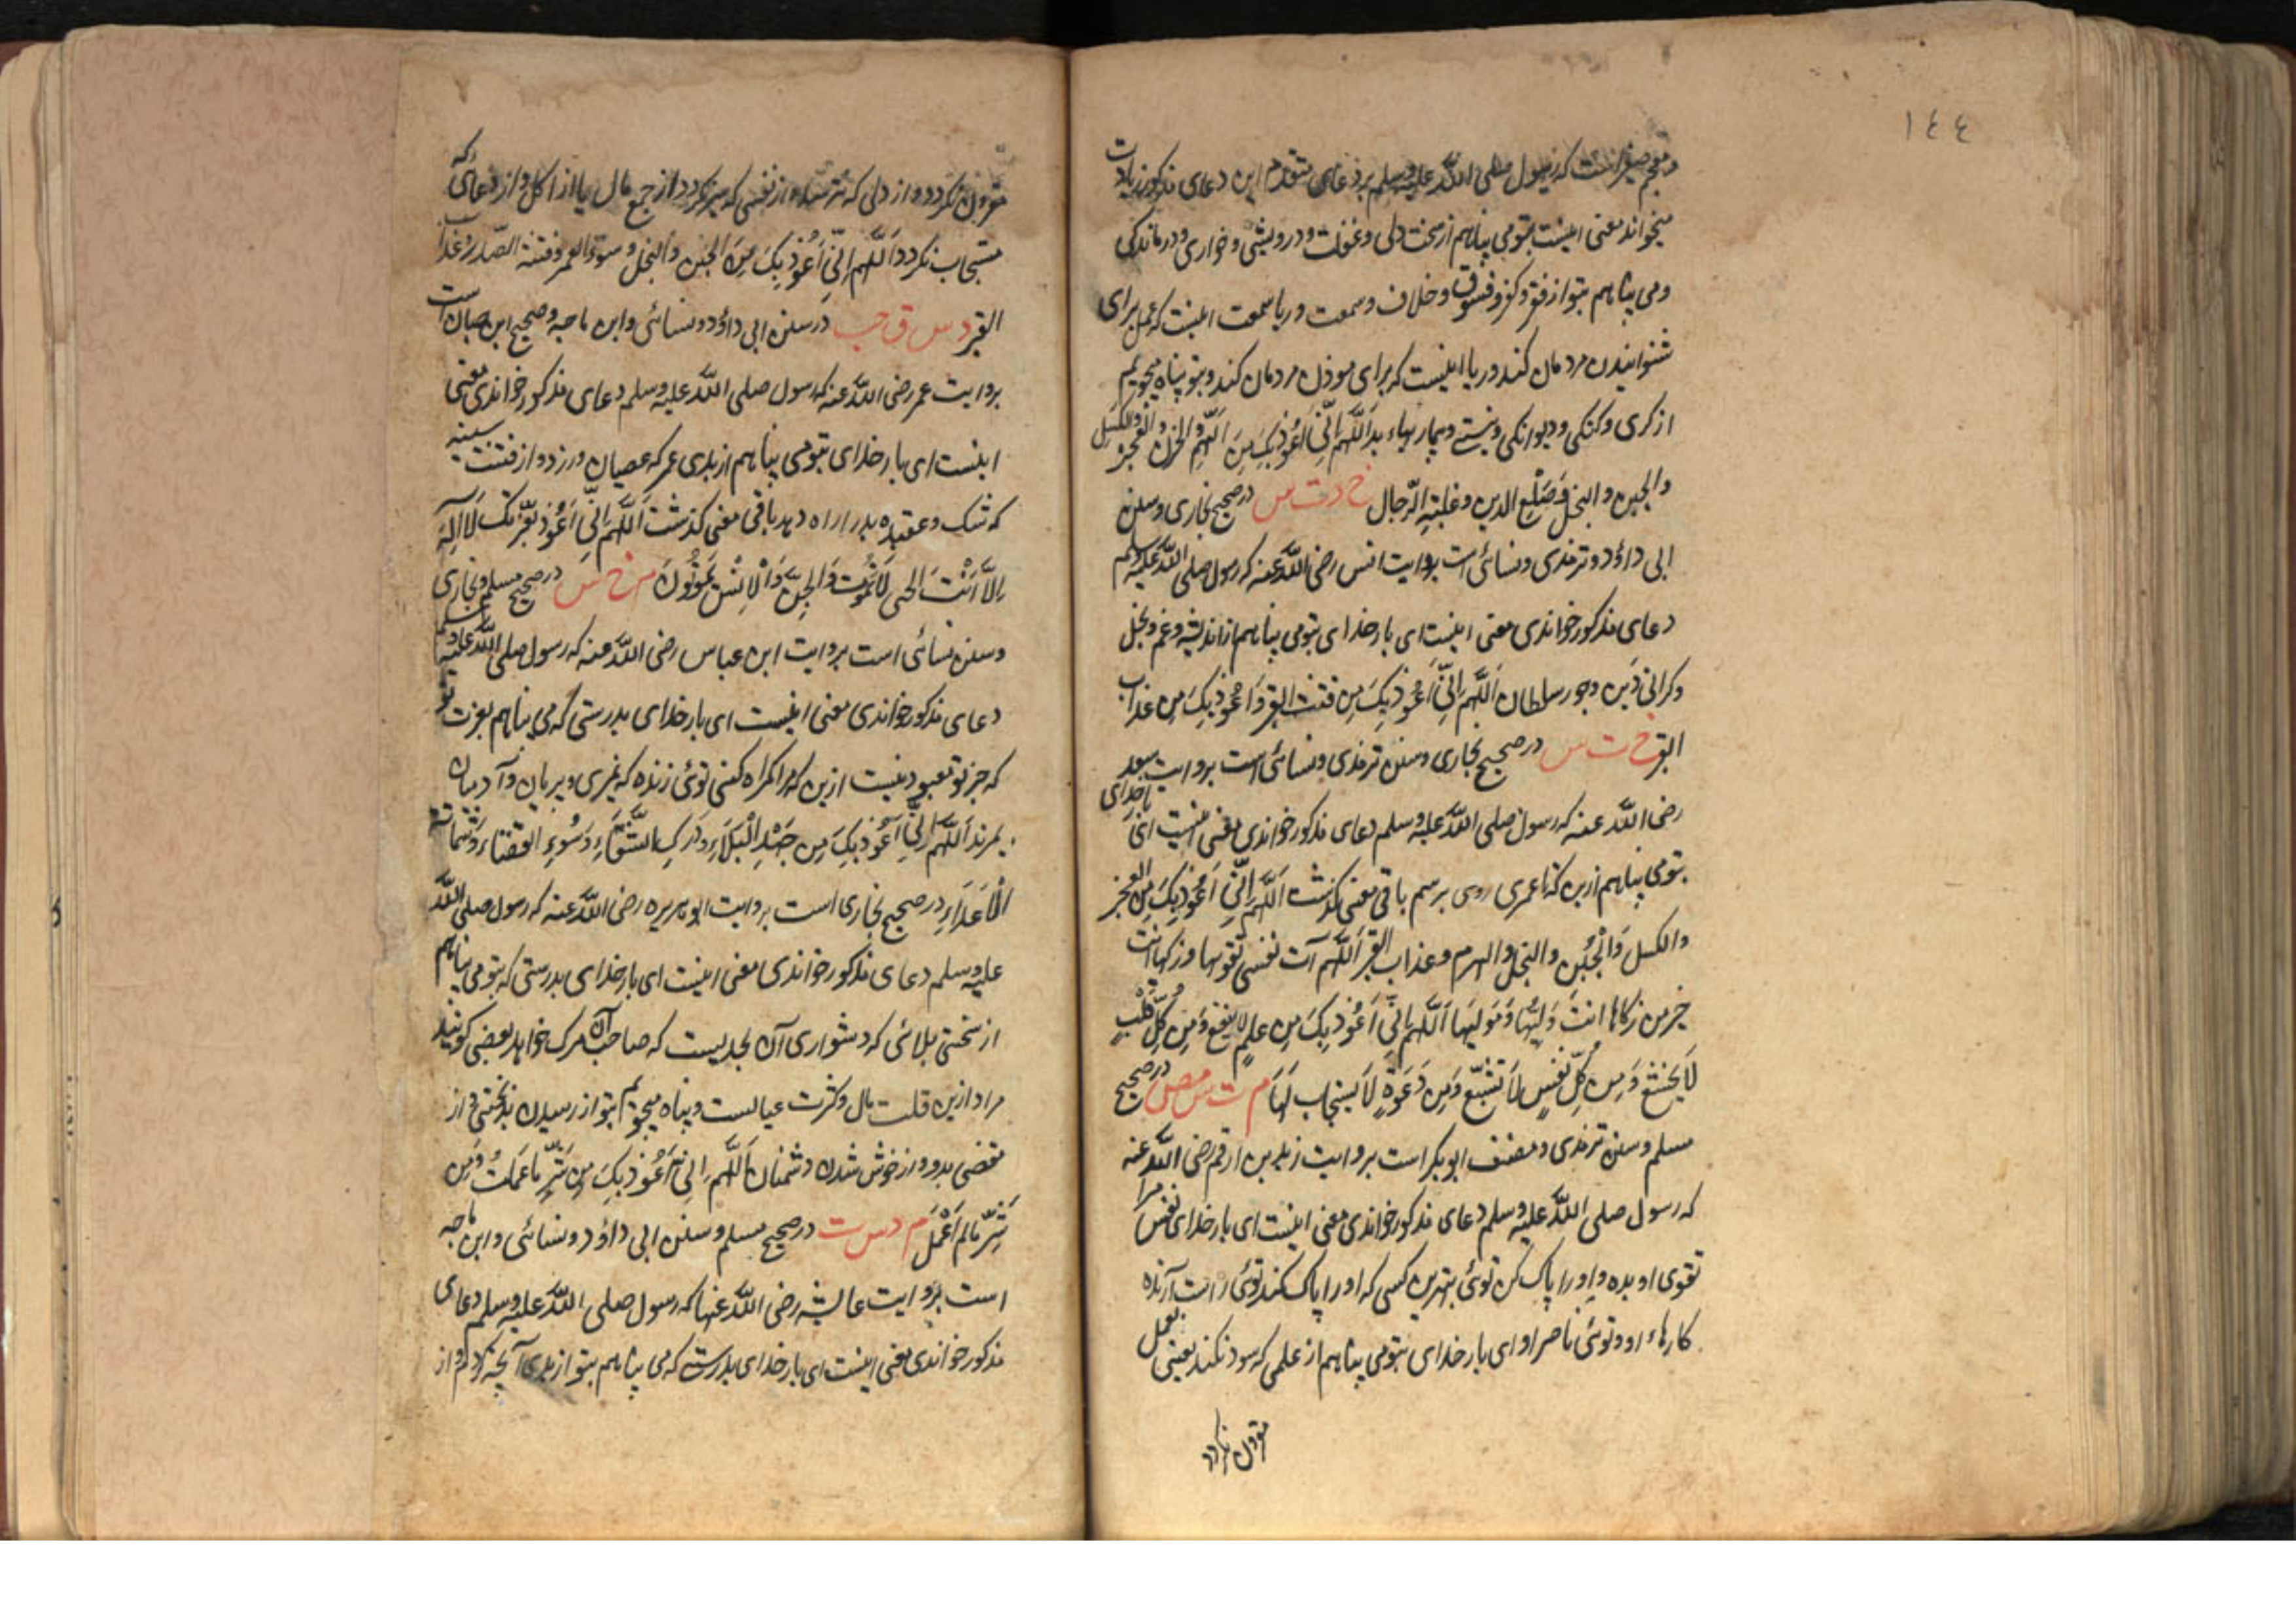 ١٤٤
و معجم صغیر است که رسول صلی الله علیه وسلم بر دعای متقدم این دعای مذکور زیادت
میخواند معنی اینست بتو می پناهم از سخت دلی و غفلت و درویشی و خواری و درماندگی
و می پناهم بتو از فقر و کفر و فسوق و خلاف و سمعت و ریا سمعت اینست که عمل برای
شنوانیدن مردمان کند و ریا اینست که برای مودن مردمان کند و بتو پناه میجویم
از کری و کنکی و دیوانکی و بیماریهاء بد اَللّهم اِنّی اَعُوذُ بِکَ مِنَ الهمّ والحزن والعجز والکسل
والجبن والبخل وضَلَعِ الدین وغلبةِ الرّجال خ د ت س در صحیح بخاری و سنن
ابی داؤد و ترمذی و نسائی است بروایت انس رضی الله عنه که رسول صلی الله علیه وسلم
دعای مذکور خواندی معنی اینست ای بار خدای بتو می پناهم از اندیشه و غم و بخل
و کرانی دَین و جور سلطان اَللّهم اِنّی اَعُوذُ بِکَ مِن فتنة القبر وَاَعُوذُ بِکَ مِن عذاب
القبر خ ت س در صحیح بخاری و سنن ترمذی و نسائی است بروایت سعد
رضی الله عنه که رسول صلی الله علیه وسلم دعای مذکور خواندی معنی اینست ای بار خدای
بتو می پناهم ازین که تا عمری روی برسم باقی معنی کذشت اَللّهم اِنّی اَعُوذُ بِکَ مِنَ العجز
والکسل وَالْجُبْن والبخل والهرم وعذاب القبر اَللّهم آت نفسی تقوٰیها وزکها انت
خیر من زکاها انتَ وَلِیُّها وَمَولیها اَللّهم اِنّی اَعُوذُ بِکَ مِن علمٍ لا ینفع وَمِن کلّ قلبٍ
لَا یَخشعُ وَمِن کلّ نفسٍ لَا تَشبَع وَمِن دَعَوةٍ لَا یستجاب لَهَا م ت س مص در صحیح
مسلم و سنن ترمذی و مصنف ابوبکر است بروایت زید بن ارقم رضی الله عنه
که رسول صلی الله علیه وسلم دعای مذکور خواندی معنی اینست ای بار خدای نفس مرا
تقوی او بده و او را پاک کن توئی بهترین کسی که او را پاک کند توئی راست آرنده
کارهاء او و توئی ناصر او ای بار خدای بتو می پناهم از علمی که سود نکند یعنی بعمل
مقرون نکردد
مقرون نکردد و از دلی که نترسد و از نفسی که سیر نکردد از جمع مال یا از اکل و از دعای که
مستجاب نکردد اَللّهم اِنّی اَعُوذُ بِکَ مِنَ الجبن والبخل وسوء العمر وفتنة الصّدر وعذاب
القبر د س ق حب در سنن ابی داؤد و نسائی و ابن ماجه و صحیح ابن حبان است
بروایت عمر رضی الله عنه که رسول صلی الله علیه وسلم دعای مذکور خواندی معنی
اینست ای بار خدای بتو می پناهم از بدی عمر که عصیان ورزد و از فتنت سینه
که شک و عقیده بد را راه دهد باقی معنی کذشت اَللّهم اِنّی اَعُوذُ بعزّتک لَا اِلٰه
اِلاَّ اَنْتَ الحی لَا تَمُوت وَالجِنّ وَالْاِنْسُ یَمُوتُونَ م خ س در صحیح مسلم و بخاری
و سنن نسائی است بروایت ابن عباس رضی الله عنه که رسول صلی الله علیه وسلم
دعای مذکور خواندی معنی اینست ای بار خدای بدرستی که می پناهم بعزت تو
که جز تو معبود نیست ازین که مرا کمراه کنی توئی زنده که نمیری و پریان و آدمیان
بمیرند اَللّهم اِنّی اَعُوذُ بِکَ مِن جَهْدِ الْبَلَاءِ وَدَرَکِ الشَّقَاءِ وَسُوءِ القضاء وَشماتة
الْاَعدَاءِ در صحیح بخاری است بروایت ابو هریره رضی الله عنه که رسول صلی الله
علیه وسلم دعای مذکور خواندی معنی اینست ای بار خدای بدرستی که بتو می پناهم
از سختی بلائی که دشواری آن بحدیست که صاحب آن مرک خواهد بعضی کویند
مراد ازین قلت مال و کثرت عیالست و پناه میجویم بتو از رسیدن بدبختی و از
مقضی بد و از خوش شدن دشمنان اَللّهم اِنّی اَعُوذُ بِکَ مِن شَرِّ مَا عَمِلتُ وَمِن
شَرِّ مَا لم اَعْمَل م د س ت در صحیح مسلم و سنن ابی داؤد و نسائی و ابن ماجه
است بروایت عایشه رضی الله عنها که رسول صلی الله علیه وسلم دعای
مذکور خواندی معنی اینست ای بار خدای بدرستی که می پناهم بتو از بدی آنچه کردم و از